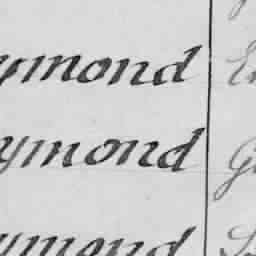 ymond
ymond
ymond